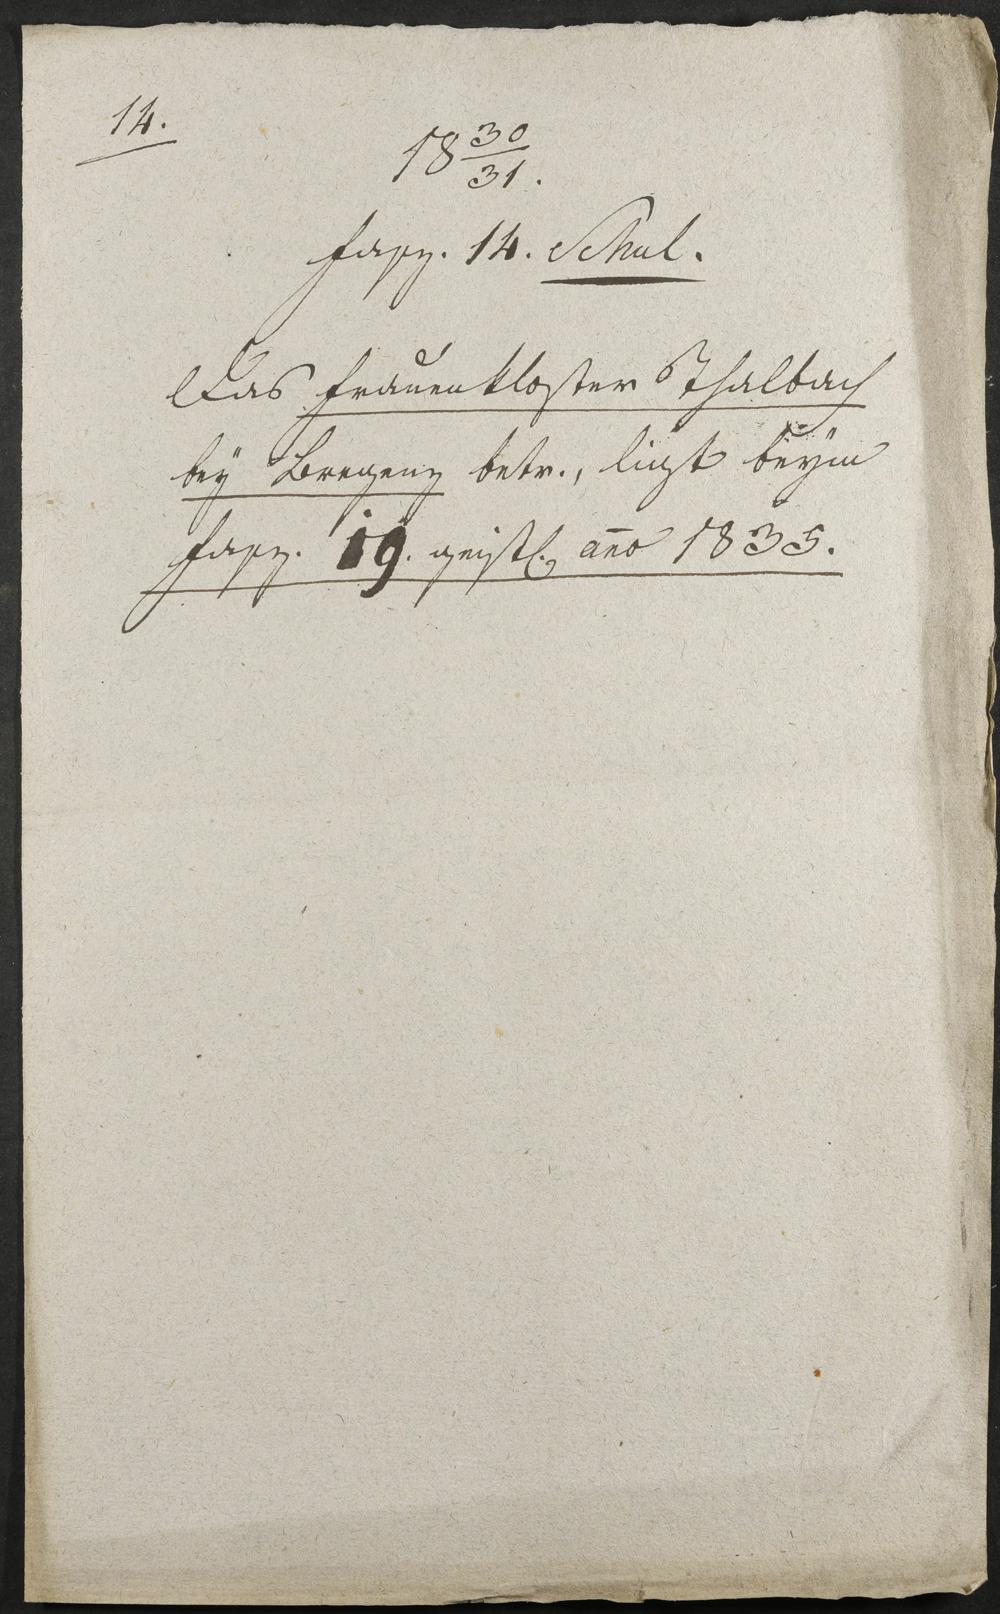 14.
18 30/31.
Fasz. 14. Schul.
Das Frauenkloster Thalbach
bey Bregenz betr., ligt beym
Fasz. 19. geistl. anno 1835.